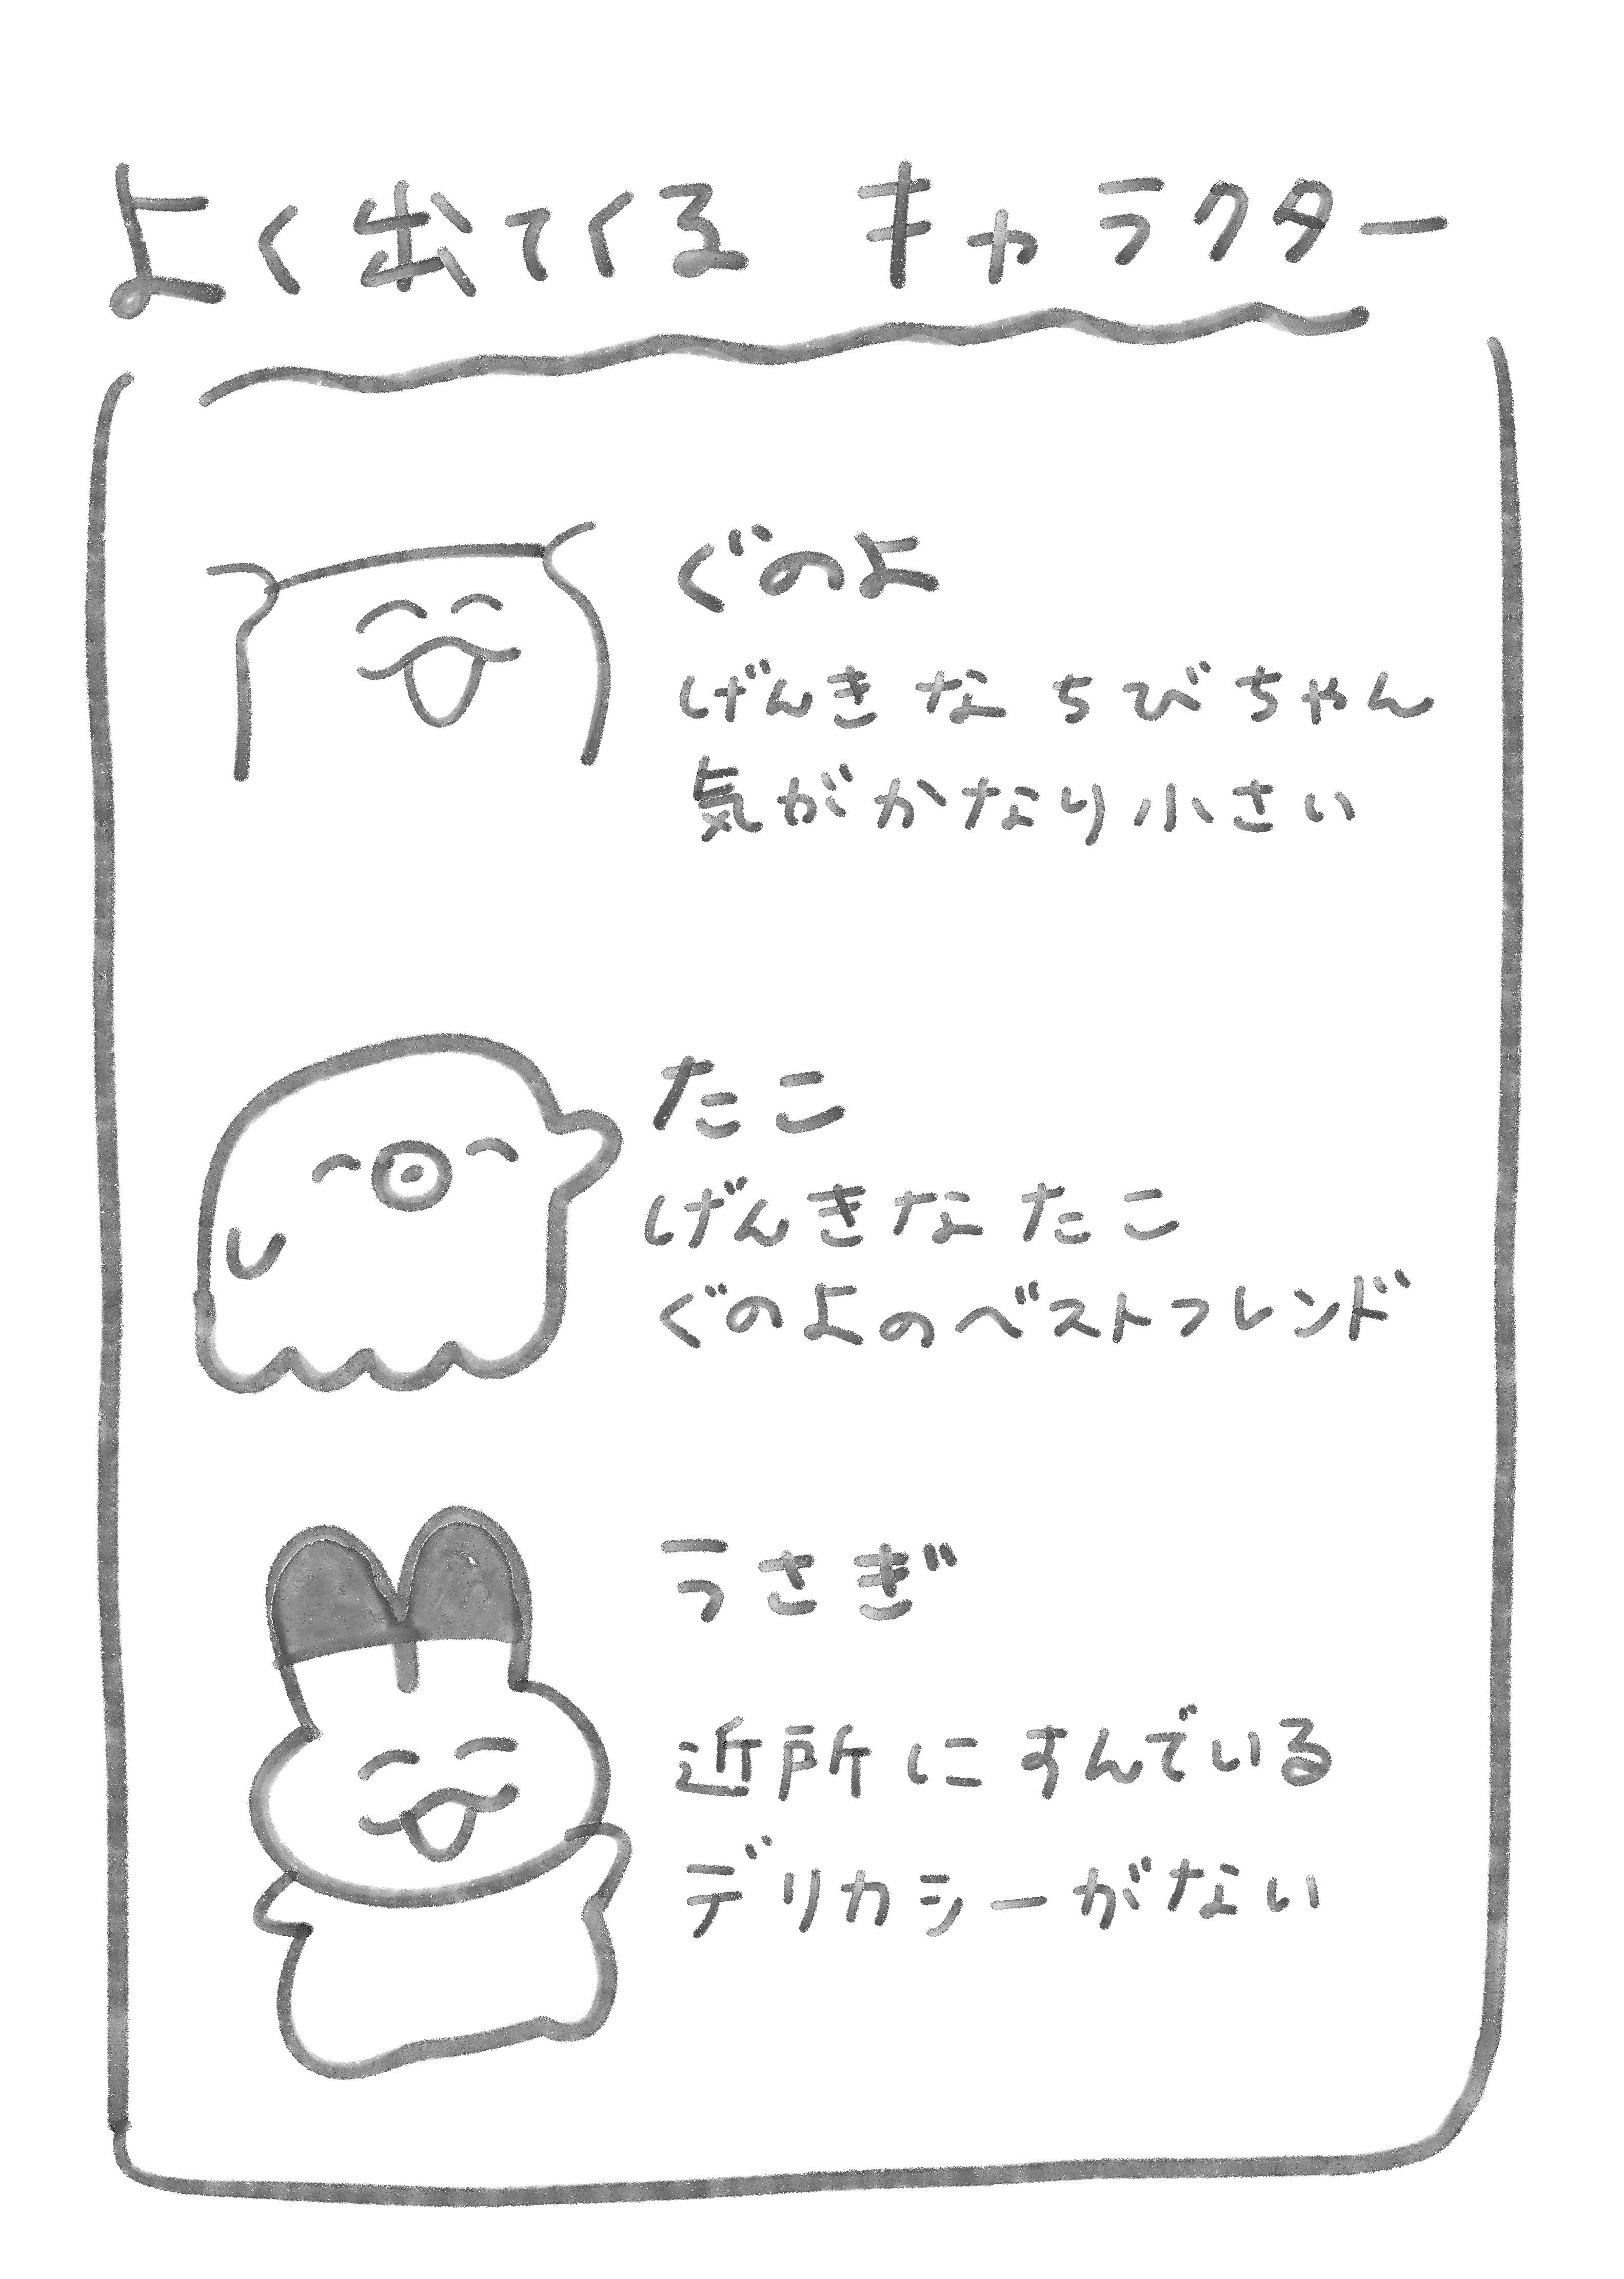 よく出てくる キャラクター
ぐのよ
げんきな ちびちゃん
気がかなり小さい
たこ
げんきな たこ
ぐのよのベストフレンド
うさぎ
近所に すんでいる
デリカシーがない